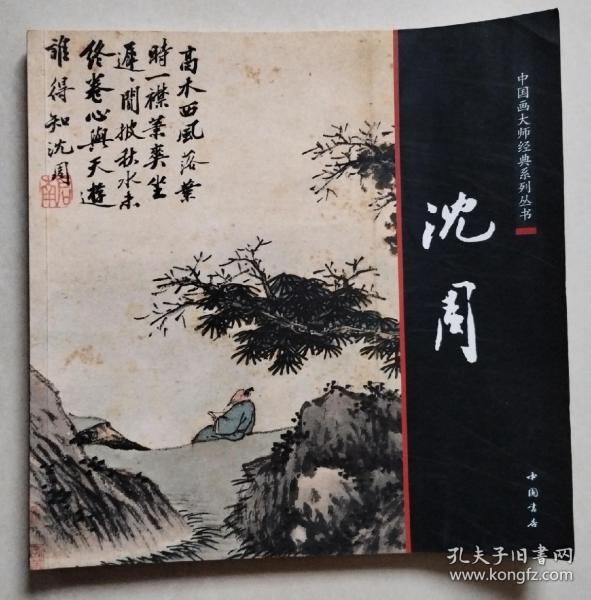 高木西風落葉
時一襟蕭爽坐
遲遲閒披秋水未
終卷心與天遊
誰得知沈周
中国画大师经典系列丛书
沈周
中国书店
孔夫子旧书网
www.kongfz.com